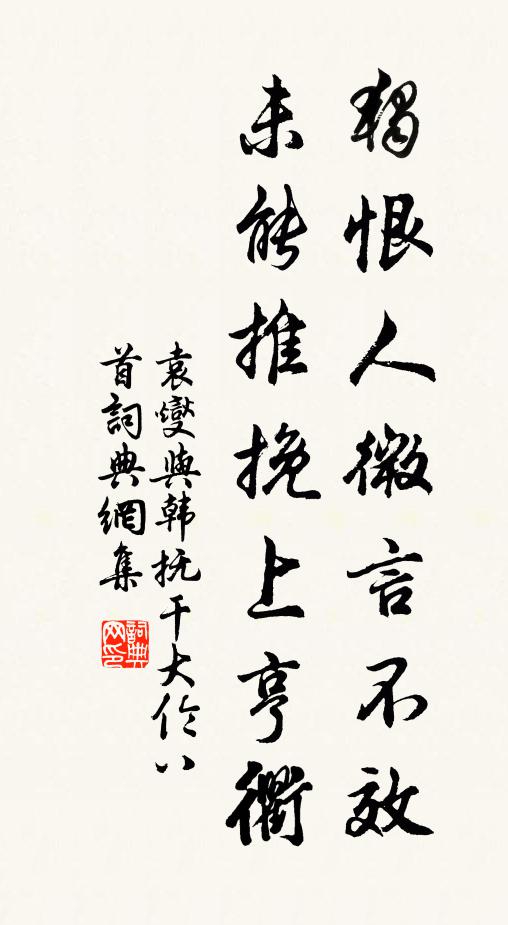 獨恨人微言不效
未能推挽上亨衢
袁燮與韓撫干大伦八
首詞典網集
詞典网印